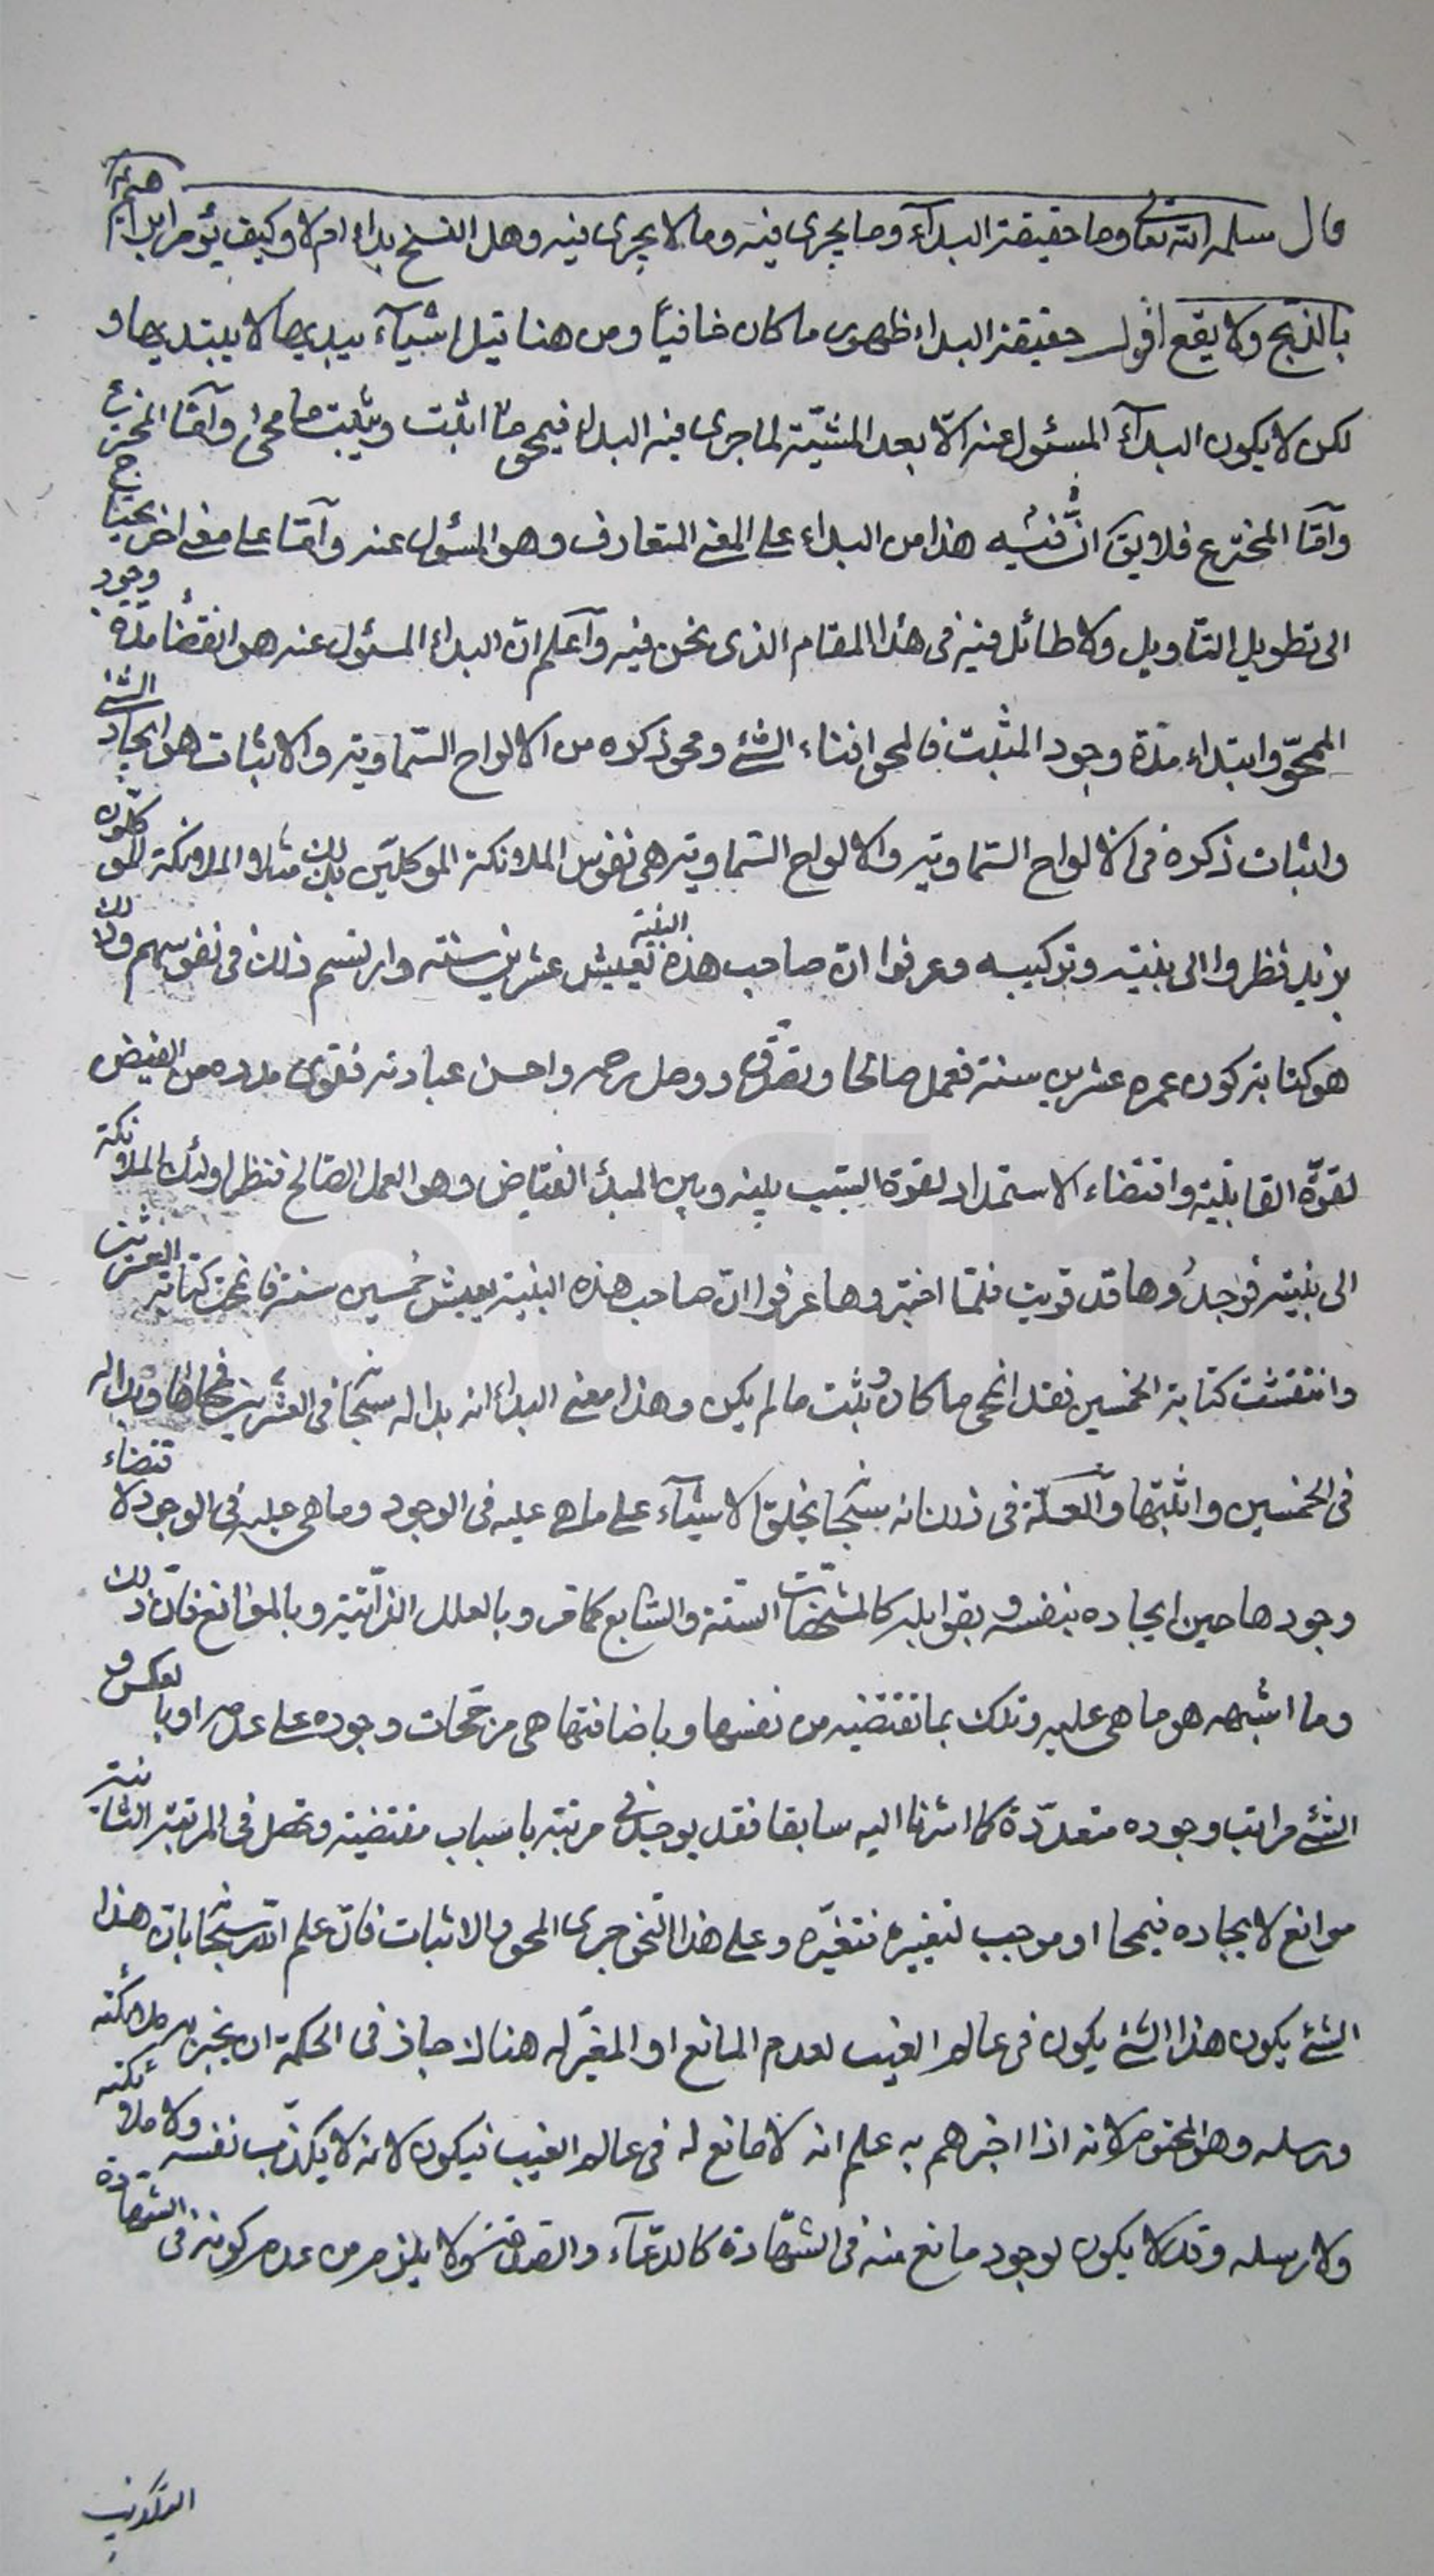 قال سلمه الله تعالى وما حقيقة البدآء وما يجرى فيه وما لا يجرى فيه وهل النسخ بداء ام لا وكيف يؤمر ابراهيم
بالذبح ولا يقع اقول حقيقة البداء ظهور ما كان خافياً ومن هنا قيل اشيآء يبديها لا يبتديها و
لكن لا يكون البدآء المسئول عنه الّا بعد المشيّة لما جرى فيه البداء فيمحو ممّا اثبت ويثبت ما محى وآمّا المخترع
وآمّا المخترع فلا يق انّ فيه هذا من البداء على المعنى المتعارف وهو المسؤل عنه وآمّا على معنى اخر يحتاج
الى تطويل التاويل ولا طائل فيه فى هذا المقام الذى نحن فيه وآعلم انّ البداء المسئول عنه هو انقضاء مدّة وجود
الممحوّ وابتداء مدّة وجود المثبت فالمحو افناء الشئ ومحو ذكره من الالواح السّماوية والاثبات هو ايجاد الشئ
واثبات ذكره فى الالواح السّماوية والالواح السّماوية هى نفوس الملائكة الموكلين بذلك مثلا الملائكة الموكلون
بزيد نظروا الى بنيته وتركيبه وعرفوا انّ صاحب هذه البنية يعيش عشرين سنة وارتسم ذلك فى نفوسهم وذلك
هو كتابة كون عمره عشرين سنة فعمل صالحا وتصدّق ووصل رحمه واحسن عبادته فقوى مدده من الفيض
لقوّة القابليّة واقتضاء الاستمداد لقوة السّبب بينه وبين المبدء الفيّاض وهو العمل الصّالح فنظر اولئك الملائكة
الى بنيته فوجدُوها قد قويت فلمّا اختبروها عرفوا انّ صاحب هذه البنية يعيش خمسين سنة فانمحت كتابة العشرين
وانتقشت كتابة الخمسين فقد انمحى ما كان وثبت ما لم يكن وهذا معنى البداء انه بدا له سبحانه فى العشرين فمحاها وبدا له
فى الخمسين واثبتها والعلّة فى ذلك انه سبحانه يخلق الاشيآء على ما هى عليه فى الوجود وما هى عليه فى الوجود لاقتضاء
وجودها حين ايجاده بنفسه وبقوابله كالمشخّصات السّتة والسّابع كما مرّ وبالعلل الذّاتية وبالموانع فانّ ذلك
وما اشبهه هو ما هى عليه وتلك بما تقتضيه من نفسها وباضافتها هى مرجّحات وجوده على عدمه او بالعكس و
الشئ مراتب وجوده متعدّدة كما اشرنا اليه سابقا فقد يوجد فى مرتبة باسباب مقتضية وتحصل فى المرتبة الثانية
موانع لايجاده فيمحا او موجب لتغييره فتغيّره وعلى هذا النّحو جرى المحو والاثبات فانّ علم الله سبحانه بانّ هذا
الشئ يكون هذا الشئ يكون فى عالم الغيب لعدم المانع او المغيّر له هنالك جاز فى الحكمة ان يخبر به ملائكته
ورسله وهو المحتوم لانه اذا اخبرهم به علم انه لا مانع له فى عالم الغيب فيكون لانه لا يكذّب نفسه ولا ملائكته
ولا رسله وقد لا يكون لوجود مانع منه فى الشّهادة كالدعآء والصدقة ولا يلزم من عدم كونه فى الشهادة
التكذيب